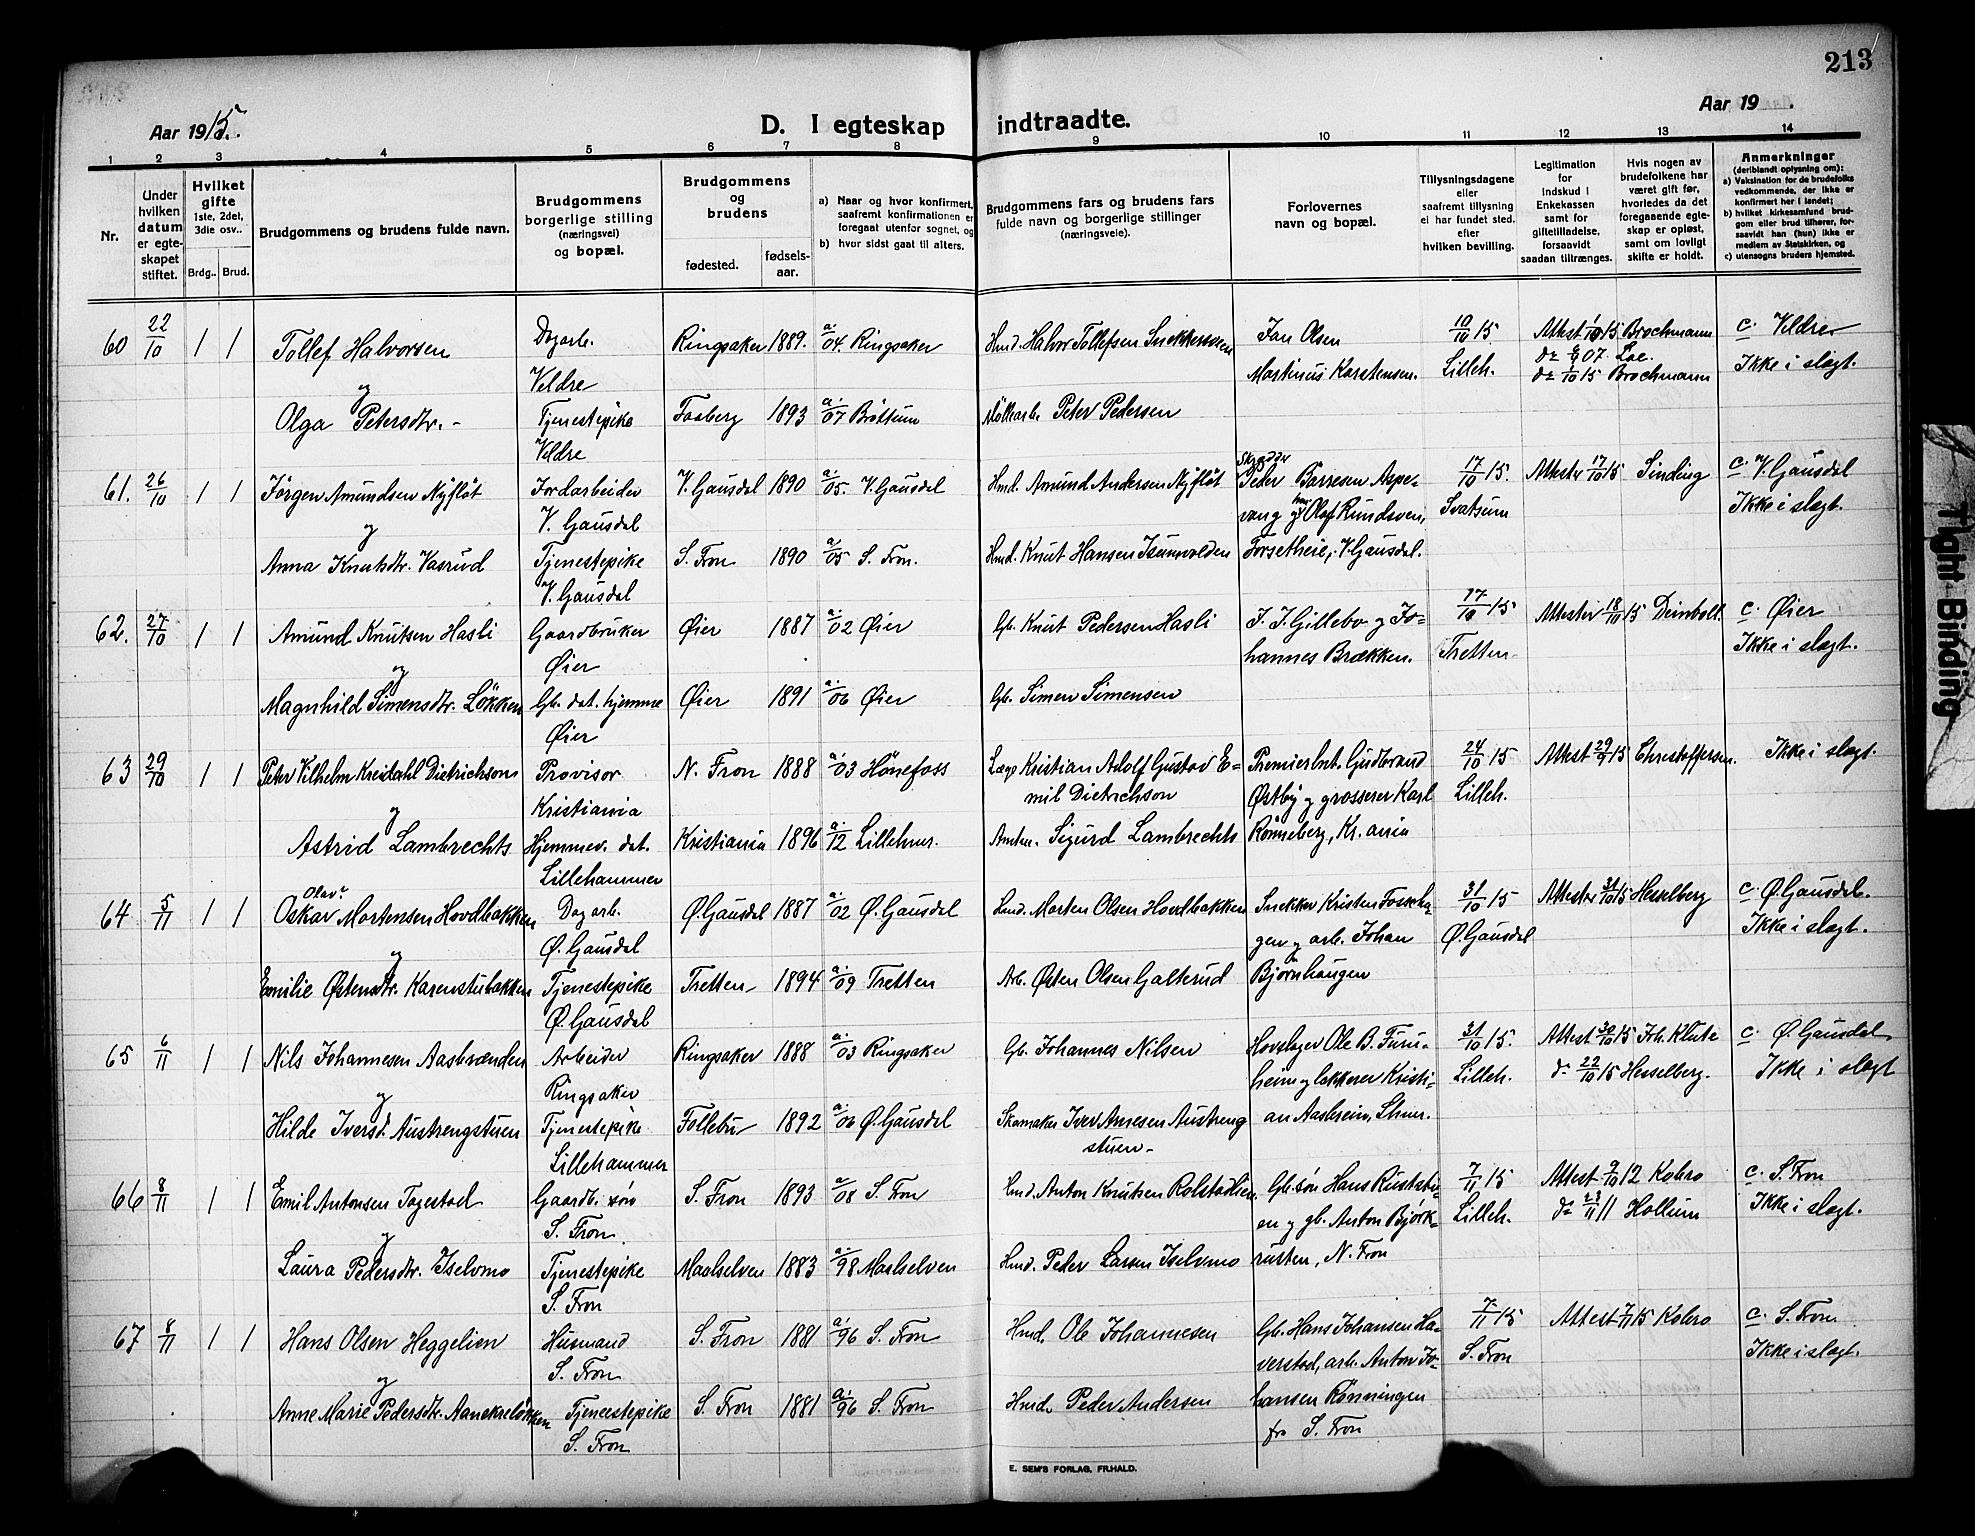 213
Aar 1915.
D. I egteskap indtraadte.
Aar 19 .
1 2 3 4 5 6 7 8 9 10 11 12 13 14
Nr.
Under hvilken datum er egteskapet stiftet.
Hvilket gifte 1ste, 2det, 3die osv..
Brdg.. Brud.
Brudgommens og brudens fulde navn.
Brudgommens borgerlige stilling (næringsvei) og bopæl.
Brudgommens og brudens
fødested.
fødselsaar.
a) Naar og hvor konfirmert, saafremt konfirmationen er foregaat utenfor sognet, og
b) hvor sidst gaat til alters.
Brudgommens fars og brudens fars fulde navn og borgerlige stillinger (næringsveie).
Forlovernes navn og bopæl.
Tillysningsdagene eller saafremt tillysning ei har fundet sted. efter hvilken bevilling.
Legitimation for indskud i Enkekassen samt for giftetilladelse, forsaavidt saadan tiltrænges.
Hvis nogen av brudefolkene har været gift før, hvorledes da det foregaaende egteskap er opløst, samt om lovligt skifte er holdt.
Anmerkninger (deriblandt oplysning om):
a) Vaksination for de brudefolks vedkommende, der ikke er konfirmert her i landet;
b) hvilket kirkesamfund brudgom eller brud tilhører, forsaavidt han (hun) ikke er medlem av Statskirken, og
c) utensogns bruders hjemsted.
60 22/10 1 1 Tollef Halvorsen Dagarb. Veldre Ringsaker 1889. a. 04. Ringsaker Hmd. Halvor Tollefsen Jan Olsen Martinus Karstensen. 10/10 15. Lilleh. Attest 15 Brochmann 07. Loe. 15 Brochmann c. Veldre Ikke i slegt.
og
Olga Petersdtr. - Tjenestepike Veldre Faaberg 1893 a. 07 Brøttum Peter Pedersen
61. 26/10 1 1 Jörgen Amundsen Nyfløt Jordarbeider V. Gausdal V. Gausdal 1890 a. 05. V. Gausdal Hmd. Amund Andersen Nyfløt Peder Börresen Aspevang og Olaf Rundsven, Forsetheie, V. Gausdal. 17/10 15. Svatsum Attester 17/10 15 Sinding c. V. Gausdal Ikke i slegt.
og
Anna Knutsdtr. Vasrud Tjenestepike V. Gausdal S. Fron 1890 a. 05 S. Fron. Hmd. Knut Hansen Isumvolden
62. 27/10 1 1 Amund Knutsen Hasli Gaardbruker Øier Øier 1887 a. 02 Øier Gb. Knut Pedersen Hasli J. J. Gillebo og Johannes Brækken. 17/10 15 Tretten Attester 18/10 15 Deinboll. c. Øier Ikke i slegt.
og
Magnhild Simensdtr. Løkken Gb. dat. hjemme Øier Øier 1891 a. 06 Øier Gb. Simen Simensen
63 29/10 1 1 Peter Vilhelm Kreidahl Dietrichson Provisor Kristiania N. Fron 1888 a. 03 Hönefoss Læge Kristian Adolf Gustav Emil Dietrichson Premierlnt. Gudbrand Østby og grosserer Karl Rönneberg, Kr.ania 24/10 15 Lilleh. Attest 29/9 15 Christoffersen. Ikke i slegt.
og
Astrid Lambrechts Hjemmev. dat. Lillehammer Kristiania 1896 a. 12 Lillehmr. Amtm. Sigurd Lambrechts
64 5/11 1 1 Oskar Olav Mortensen Hovdbakken Dagarb. Ø. Gausdal Ø. Gausdal 1887 a. 02 Ø. Gausdal Hmd. Morten Olsen Hovdbakken Snekker Kristen Fossehagen og arb. Johan Bjørnhaugen 31/10 15 Ø. Gausdal Attester 31/10 15 Hesselberg c. Ø. Gausdal. Ikke i slegt.
og
Emilie Østensdtr. Karenstubakken Tjenestepike Ø. Gausdal Tretten 1894 a. 09 Tretten Arb. Østen Olsen Galterud
65 6/11 1 1 Nils Johannesen Aasbrænden Arbeider Ringsaker Ringsaker 1888 a. 03 Ringsaker Gb. Johannes Nilsen Hovslager Ole B. Furuheim og lakkerer Kristian Aasheim, Lhmr. 31/10 15. Lilleh. Attest 30/10 15 Joh. Klüte do 22/10 15 Hesselberg. c. Ø. Gausdal Ikke i slegt
og
Hilde Iversd. Austrengstuen Tjenestepike Lillehammer Follebu 1892 a. 06 Ø. Gausdal Skomaker Iver Arnesen Austrengstuen -
66 8/11 1 1 Emil Antonsen Togestad Gaardb. søn S. Fron. S. Fron 1893 a. 08 S. Fron Hmd. Anton Knutsen Rolstadlien Gb. søn Hans og gb. Anton Björkrusten, N. Fron 7/11 15 Lilleh. Attest 9/10 12 Kobro do 23/11 11 Hollum c. S. Fron Ikke i slegt.
og
Laura Pedersdtr. Iselvmo Tjenestepike S. Fron Maalselven 1883 a. 98 Maalselven Hmd. Peder Larsen Iselvmo
67 8/11 1 1 Hans Olsen Heggelien Husmand S. Fron S. Fron 1881 a. 96 S. Fron Hmd. Ole Johannesen Gb. Hans Johansen Haverstad, arb. Anton Johansen Rönningen fra S. Fron 7/11 15 S. Fron Attest 7/11 15 Kobro c. S. Fron Ikke i slegt.
og
Anne Marie Pedersdtr. Aanekreløkken Tjenestepike S. Fron S. Fron 1881 a. 96 S. Fron Hmd. Peder Andersen
E. SEM'S FORLAG, FR.HALD.
Tight Binding